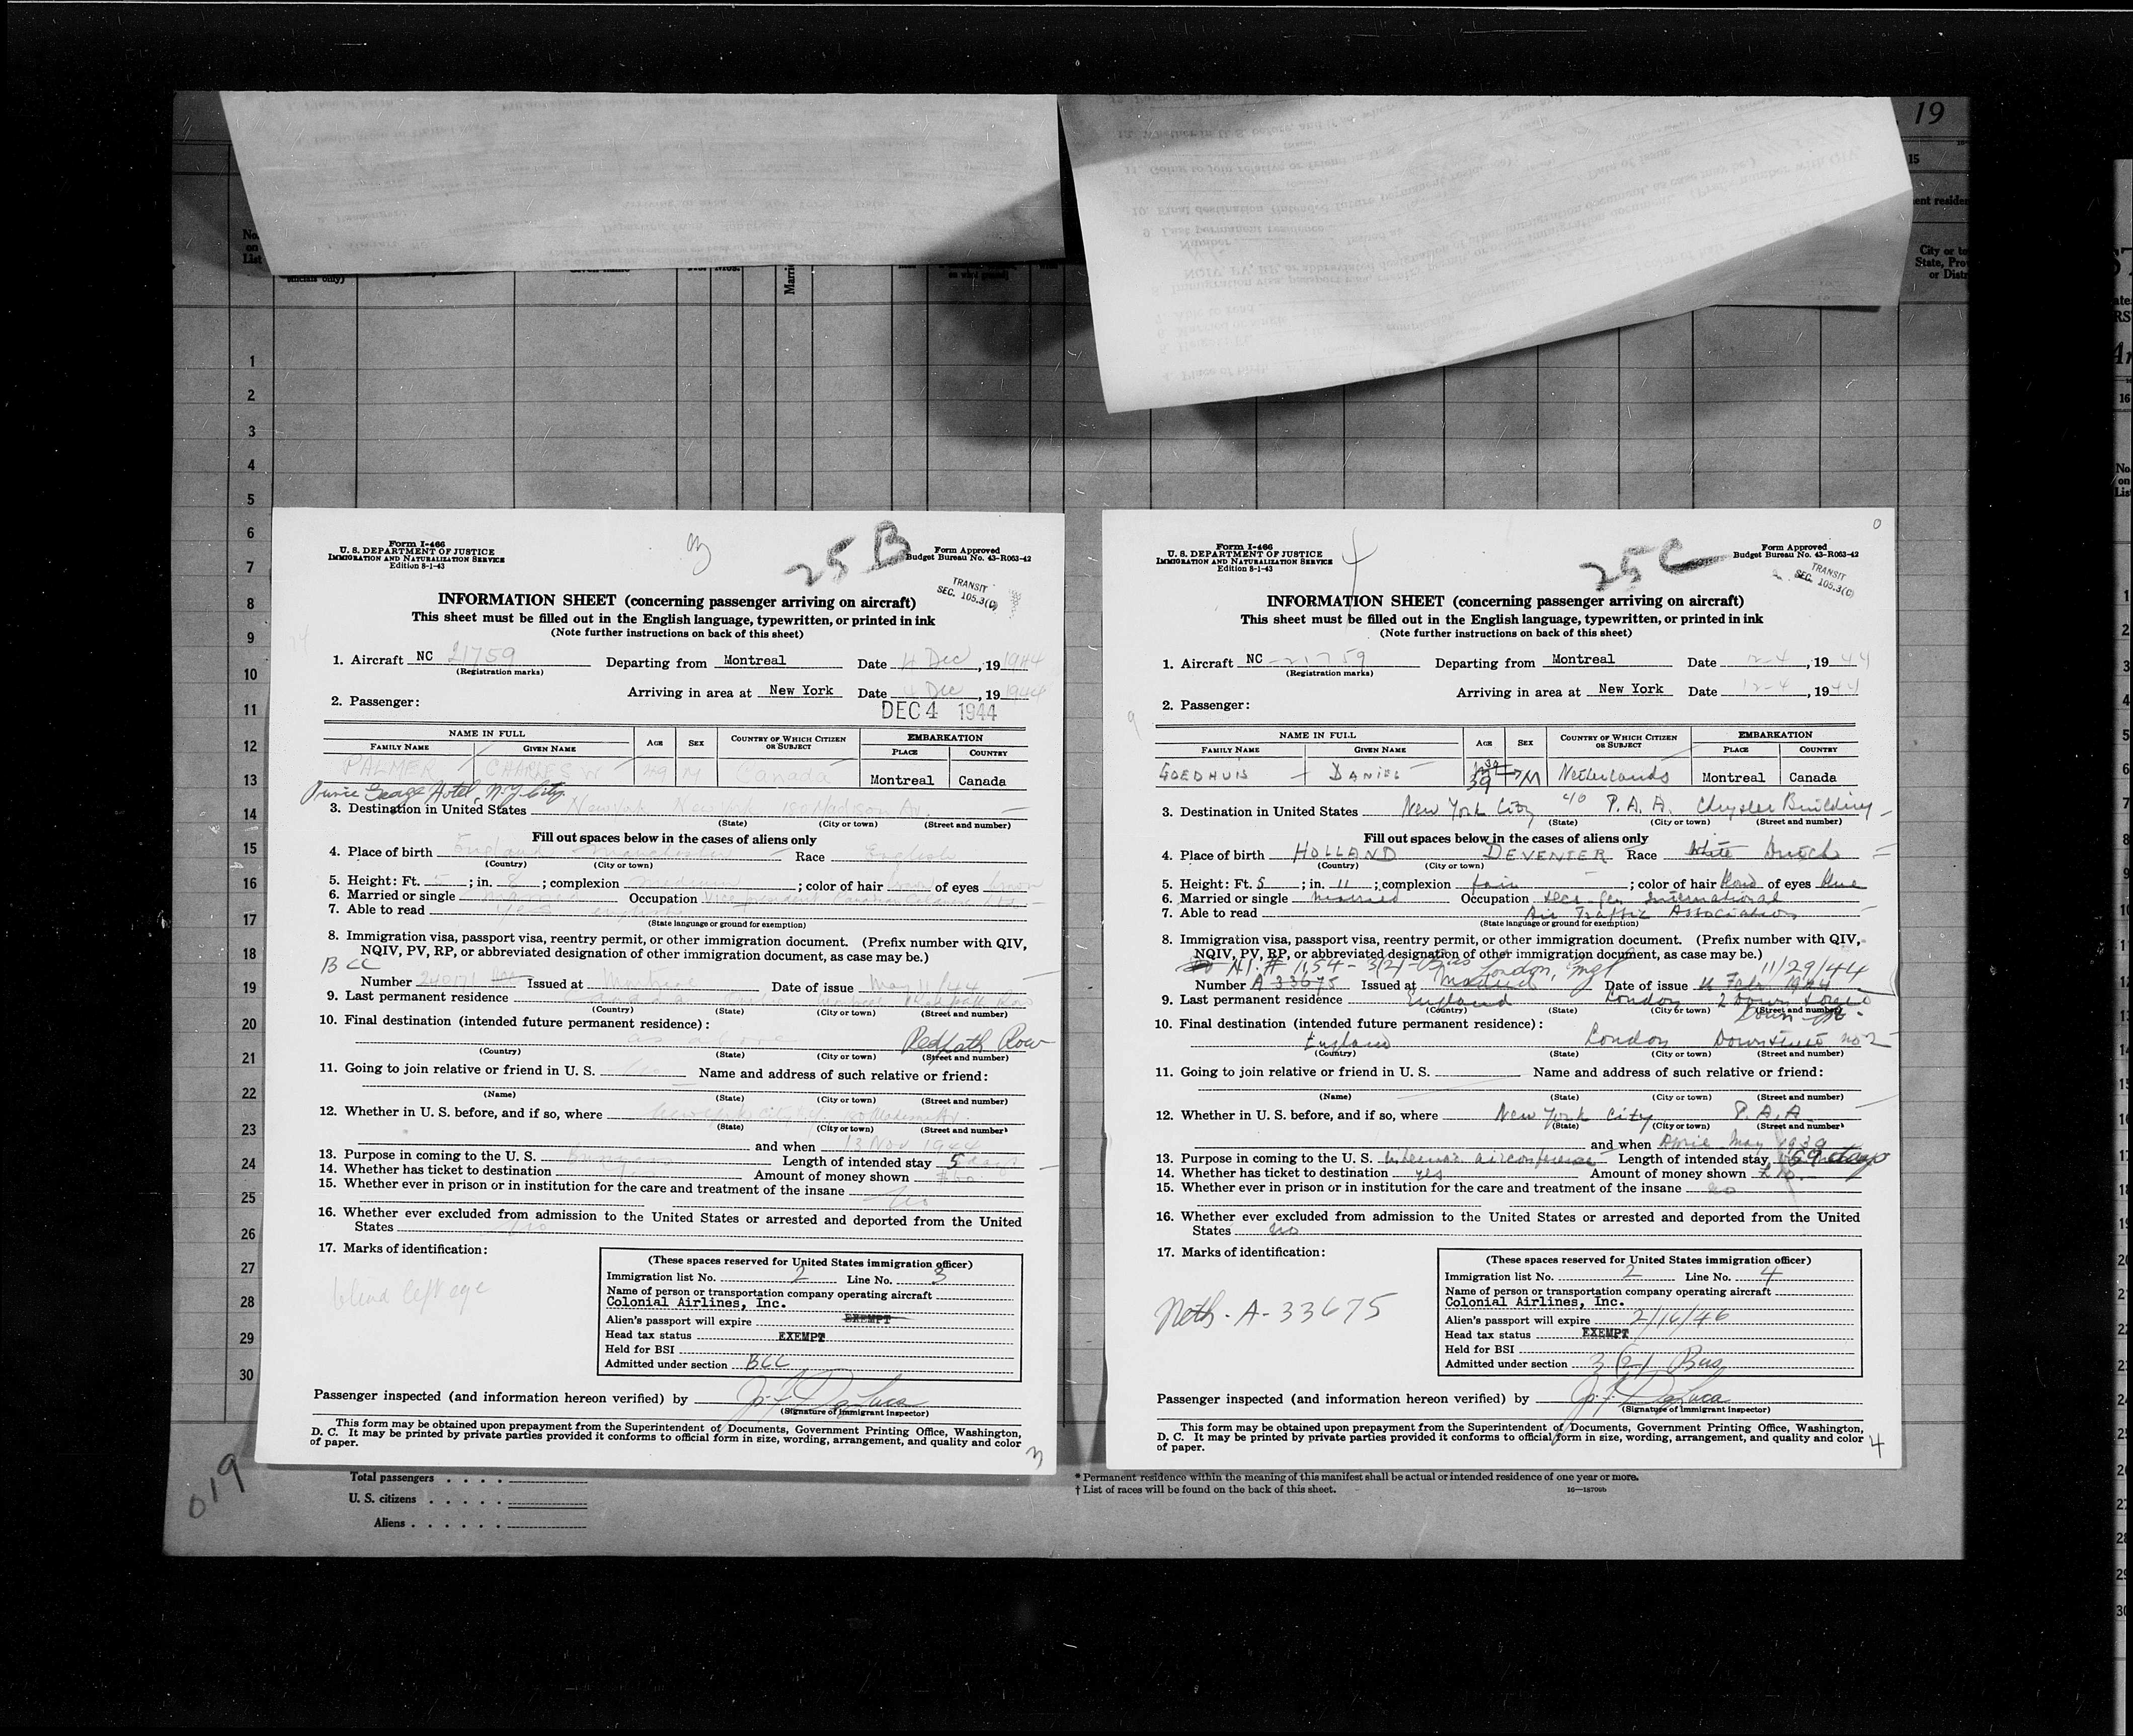 19
15
ent residen
City or to
State, Prov
or Distr
No.
on
List
1
2
3
4
5
6
7
8
9
10
11
12
13
14
15
16
17
18
19
20
21
22
23
24
25
26
27
28
29
30
Form I-466
U. S. DEPARTMENT OF JUSTICE
IMMIGRATION AND NATURALIZATION SERVICE
Edition 8-1-43
25 B
Form Approved
Budget Bureau No. 43-R063-42
TRANSIT
SEC. 105.3(C)
INFORMATION SHEET (concerning passenger arriving on aircraft)
This sheet must be filled out in the English language, typewritten, or printed in ink
(Note further instructions on back of this sheet)
1. Aircraft NC 21759 Departing from Montreal Date 4 Dec, 19 1944
(Registration marks)
Arriving in area at New York Date 4 Dec, 19 1944
2. Passenger:
DEC 4 1944
NAME IN FULL AGE SEX COUNTRY OF WHICH CITIZEN OR SUBJECT EMBARKATION
FAMILY NAME GIVEN NAME PLACE COUNTRY
PALMER CHARLES W 49 M Canada Montreal Canada
Prince George Hotel, N.Y. City
3. Destination in United States New York New York Madison Av.
(State) (City or town) (Street and number)
Fill out spaces below in the cases of aliens only
4. Place of birth England Manchester Race English
(Country) (City or town)
5. Height: Ft. 5; in. 8; complexion medium; color of hair brown of eyes brown
6. Married or single married Occupation Vice president Canadian Celanese Ltd
7. Able to read yes english
(State language or ground for exemption)
8. Immigration visa, passport visa, reentry permit, or other immigration document. (Prefix number with QIV,
NQIV, PV, RP, or abbreviated designation of other immigration document, as case may be.)
BCC
Number Issued at Montreal Date of issue May 11/44
9. Last permanent residence Canada Montreal Redpath Row
(Country) (State) (City or town) (Street and number)
10. Final destination (intended future permanent residence):
as above Redpath Row
(Country) (State) (City or town) (Street and number)
11. Going to join relative or friend in U. S. No Name and address of such relative or friend:
(Name) (State) (City or town) (Street and number)
12. Whether in U. S. before, and if so, where New York City
(State) (City or town) (Street and number)
and when 13 Nov 1944
13. Purpose in coming to the U. S. business Length of intended stay 5 days
14. Whether has ticket to destination Amount of money shown
15. Whether ever in prison or in institution for the care and treatment of the insane No
16. Whether ever excluded from admission to the United States or arrested and deported from the United
States No
17. Marks of identification:
blind left eye
(These spaces reserved for United States immigration officer)
Immigration list No. 2 Line No. 3
Name of person or transportation company operating aircraft
Colonial Airlines, Inc.
Alien's passport will expire EXEMPT
Head tax status EXEMPT
Held for BSI
Admitted under section BCC
Passenger inspected (and information hereon verified) by J. F. DeLuca
(Signature of Immigrant Inspector)
This form may be obtained upon prepayment from the Superintendent of Documents, Government Printing Office, Washington,
D. C. It may be printed by private parties provided it conforms to official form in size, wording, arrangement, and quality and color
of paper.
3
Form I-466
U. S. DEPARTMENT OF JUSTICE
IMMIGRATION AND NATURALIZATION SERVICE
Edition 8-1-43
4
25 C
Form Approved
Budget Bureau No. 43-R063-42
TRANSIT
SEC. 105.3(C)
INFORMATION SHEET (concerning passenger arriving on aircraft)
This sheet must be filled out in the English language, typewritten, or printed in ink
(Note further instructions on back of this sheet)
1. Aircraft NC -21759 Departing from Montreal Date 12-4, 19 44
(Registration marks)
Arriving in area at New York Date 12-4, 19 44
2. Passenger:
NAME IN FULL AGE SEX COUNTRY OF WHICH CITIZEN OR SUBJECT EMBARKATION
FAMILY NAME GIVEN NAME PLACE COUNTRY
GOEDHUIS DANIEL 39 M Netherlands Montreal Canada
3. Destination in United States New York City c/o P.A.A. Chrysler Building
(State) (City or town) (Street and number)
Fill out spaces below in the cases of aliens only
4. Place of birth HOLLAND DEVENTER Race White Dutch
(Country) (City or town)
5. Height: Ft. 5; in. 11; complexion fair; color of hair blond of eyes blue
6. Married or single married Occupation Secr-gen International
7. Able to read Air Traffic Association
(State language or ground for exemption)
8. Immigration visa, passport visa, reentry permit, or other immigration document. (Prefix number with QIV,
NQIV, PV, RP, or abbreviated designation of other immigration document, as case may be.)
N.I. # 1154 - 3(2) - Bus London, Engl 11/29/44
Number A 33675 Issued at Date of issue 16 Febr. 1944
9. Last permanent residence England London 2 Down Street
(Country) (State) (City or town) (Street and number)
Down St.
10. Final destination (intended future permanent residence):
England London Downstreet no 2
(Country) (State) (City or town) (Street and number)
11. Going to join relative or friend in U. S. Name and address of such relative or friend:
(Name) (State) (City or town) (Street and number)
12. Whether in U. S. before, and if so, where New York City P.A.A.
(State) (City or town) (Street and number)
and when April May 1939
13. Purpose in coming to the U. S. airconference Length of intended stay 69 days
14. Whether has ticket to destination yes Amount of money shown
15. Whether ever in prison or in institution for the care and treatment of the insane no
16. Whether ever excluded from admission to the United States or arrested and deported from the United
States no
17. Marks of identification:
Neth. A-33675
(These spaces reserved for United States immigration officer)
Immigration list No. 2 Line No. 4
Name of person or transportation company operating aircraft
Colonial Airlines, Inc.
Alien's passport will expire 2/16/46
Head tax status EXEMPT
Held for BSI
Admitted under section 3(2) Bus
Passenger inspected (and information hereon verified) by J. F. DeLuca
(Signature of Immigrant Inspector)
This form may be obtained upon prepayment from the Superintendent of Documents, Government Printing Office, Washington,
D. C. It may be printed by private parties provided it conforms to official form in size, wording, arrangement, and quality and color
of paper.
4
019
Total passengers . . . .
U. S. citizens . . . . .
Aliens . . . . . .
* Permanent residence within the meaning of this manifest shall be actual or intended residence of one year or more.
† List of races will be found on the back of this sheet.
16—18706b